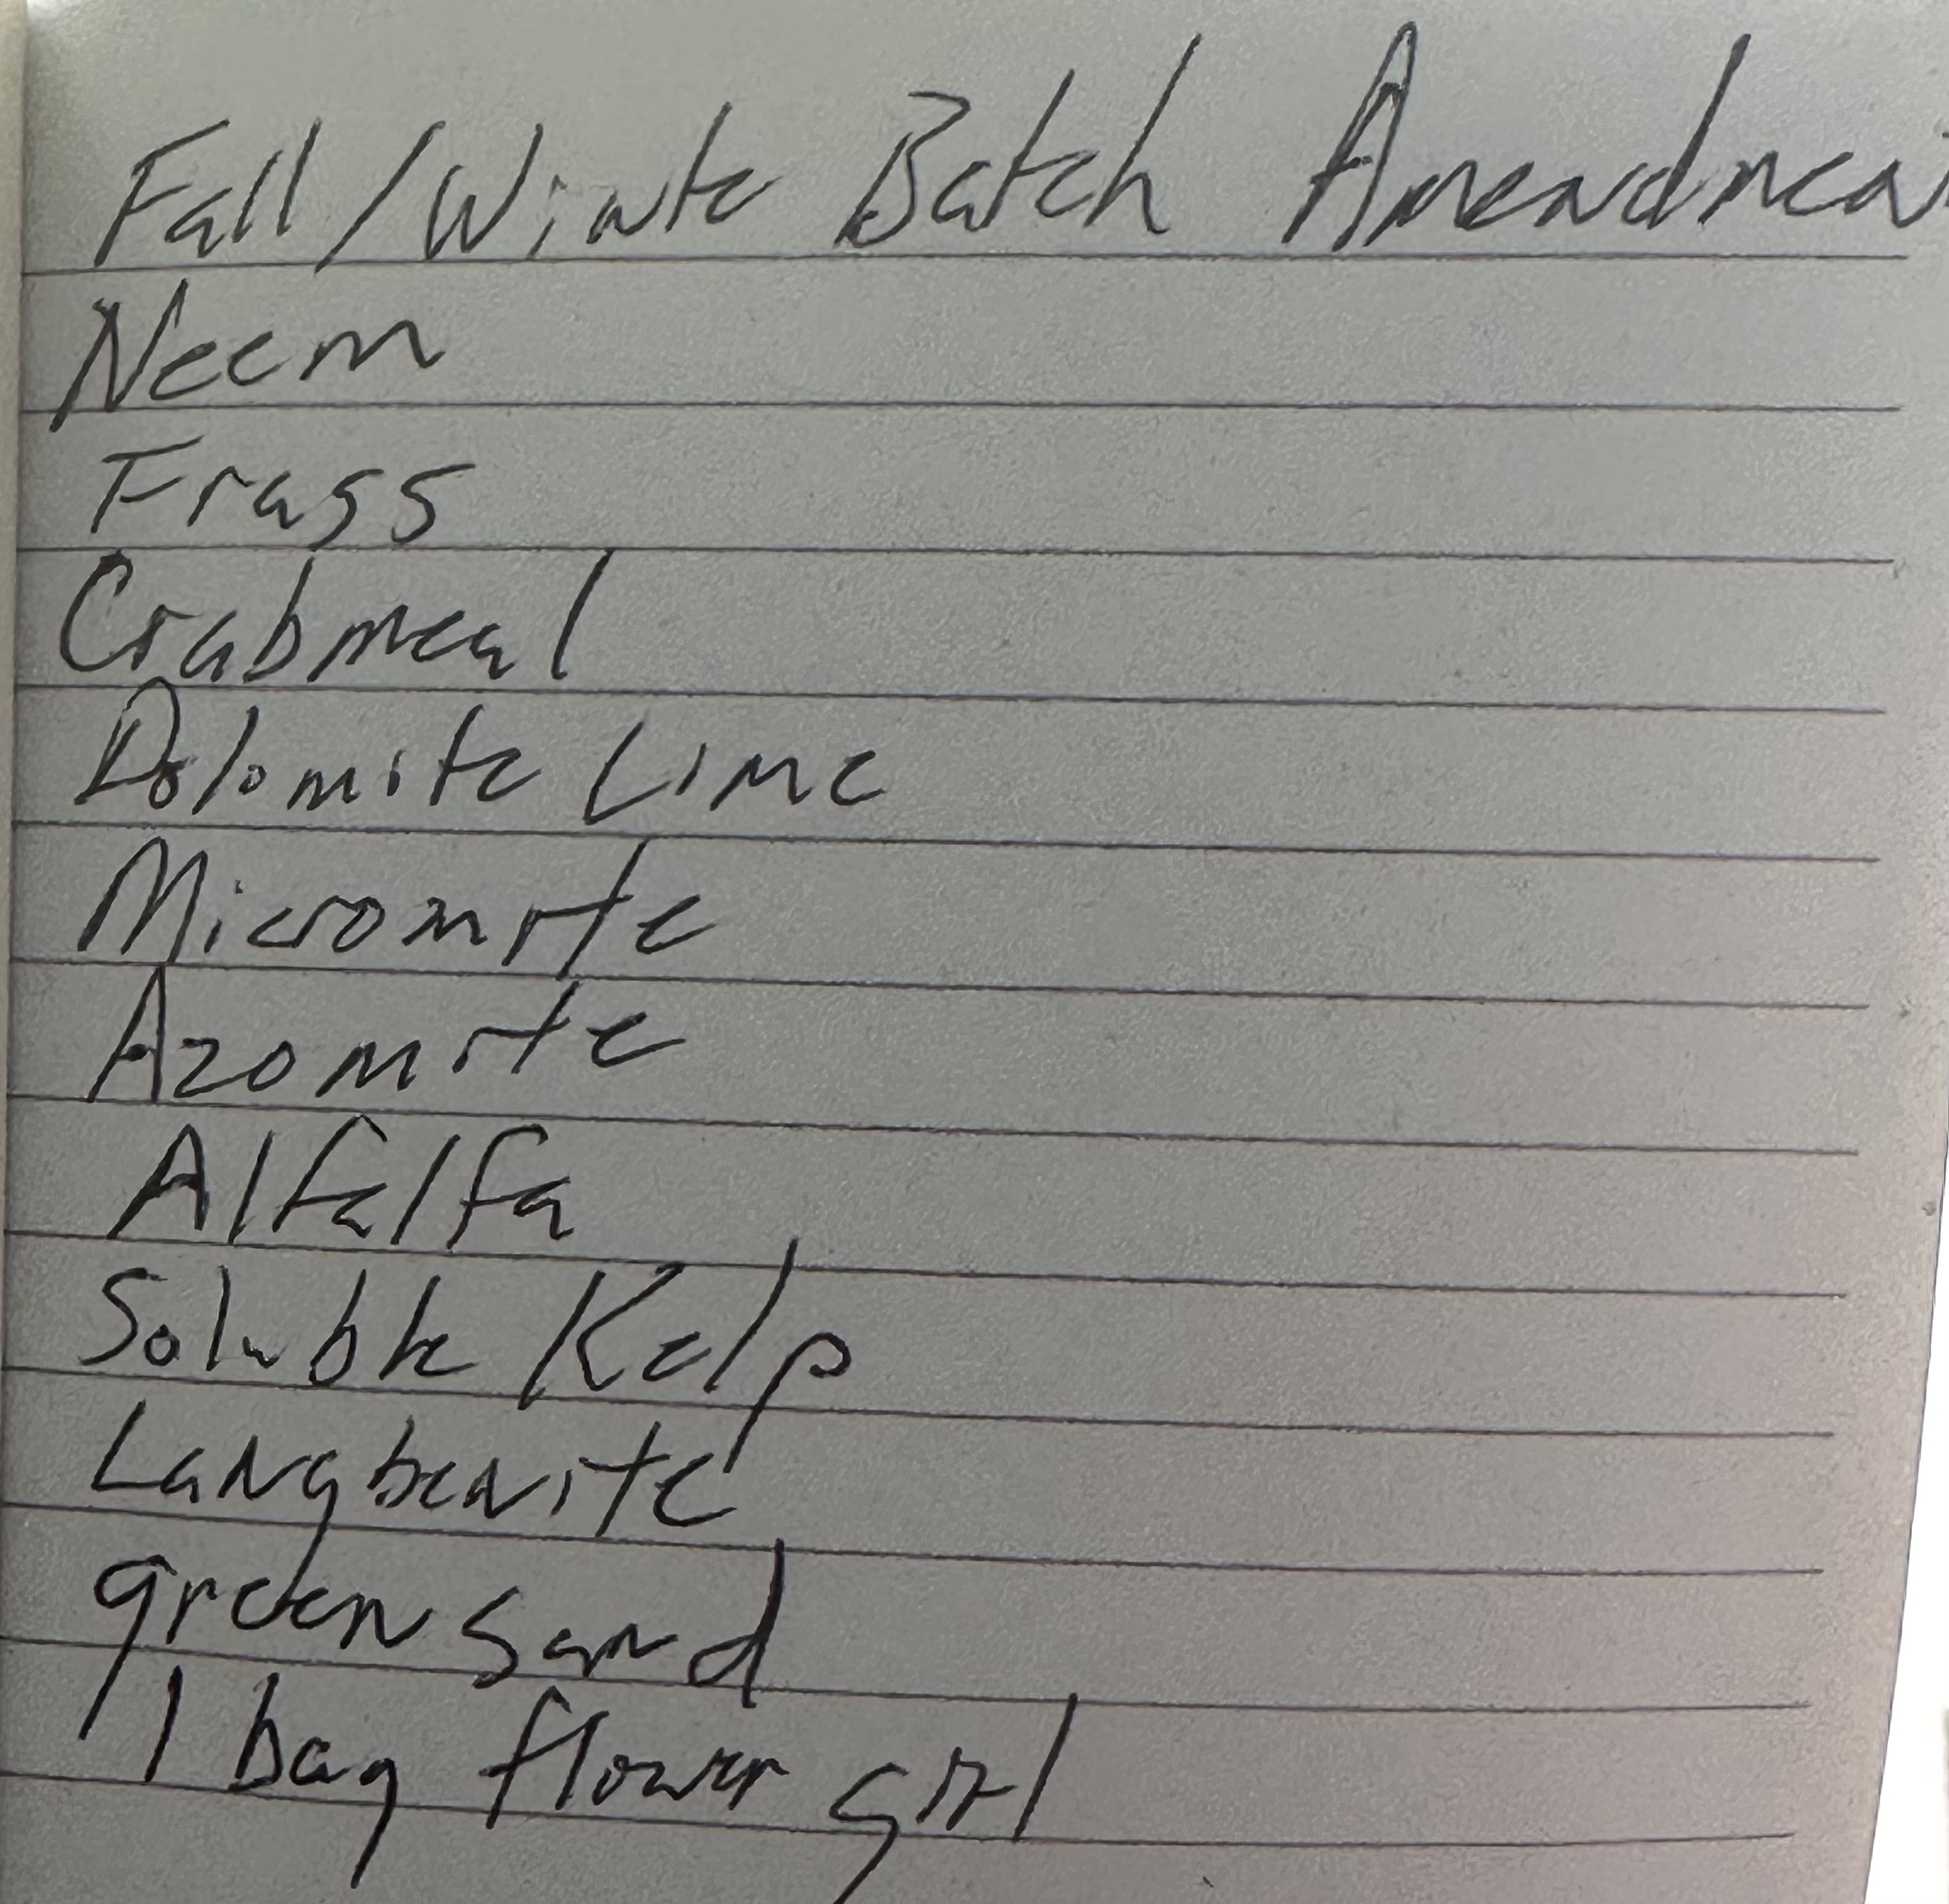 Fall/Winte Batch Amendmen
Neem
Frass
Crabmeal
Dolomite Lime
Micromite
Azomite
Alfalfa
Soluble Kelp
Langbenite
green sand
1 bag flower girl